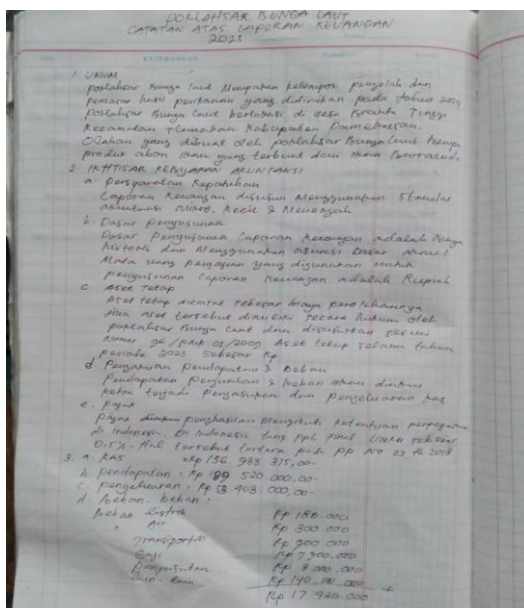 POKLAHSAR BUNGA LAUT
CATATAN ATAS LAPORAN KEUANGAN
2023
KETERANGAN
1. UMUM
poklahsar Bunga laut Merupakan kelompok pengolah dan
pemasar hasil perikanan yang didirikan pada tahun 2019
poklahsar Bunga laut berlokasi di desa Branta Tinggi
Kecamatan Tlanakan Kabupaten Pamekasan.
Olahan yang dibuat oleh poklahsar Bunga laut berupa
produk abon ikan yang terbuat dari ikan
2. IKHTISAR KEBIJAKAN AKUNTANSI
a. persyaratan Kepatuhan
Laporan Keuangan disusun Menggunakan Standar
akuntansi Mikro, kecil & Menengah
b. Dasar penyusunan
Dasar Penyusunan Laporan keuangan adalah Biaya
historis dan Menggunakan asumsi Dasar akrual
Mata uang penyajian yang digunakan untuk
penyusunan Laporan keuangan adalah Rupiah
c. Aset Tetap
Aset tetap dicatat sebesar biaya perolehannya
jika aset tersebut dimiliki secara hukum oleh
poklahsar Bunga laut dan disusutkan sesuai
Nomor 96/PMK 03/2009 Aset tetap selama tahun
periode 2023 sebesar Rp
d. Pengakuan pendapatan & Beban
Pendapatan penjualan & beban akan diakui
ketika terjadi pemasukan dan pengeluaran kas
e. pajak
pajak penghasilan Mengikuti ketentuan perpajakan
di Indonesia. Di Indonesia PPh Final UMKM sebesar
0,5%. Hal tersebut tertera pada pp no 23 th 2018
3. a. Kas = Rp 156 933 375,00-
b. pendapatan = Rp 189 520 000,00-
c. pengeluaran = Rp 403.000,00-
d. Beban-beban =
Beban Listrik Rp 180.000
" Air Rp 300 000
Transportasi Rp 900 000
Gaji Rp 7 900.000
Penyusutan Rp 8 000.000
Rp 140.000.000 +
Rp 17 920.000